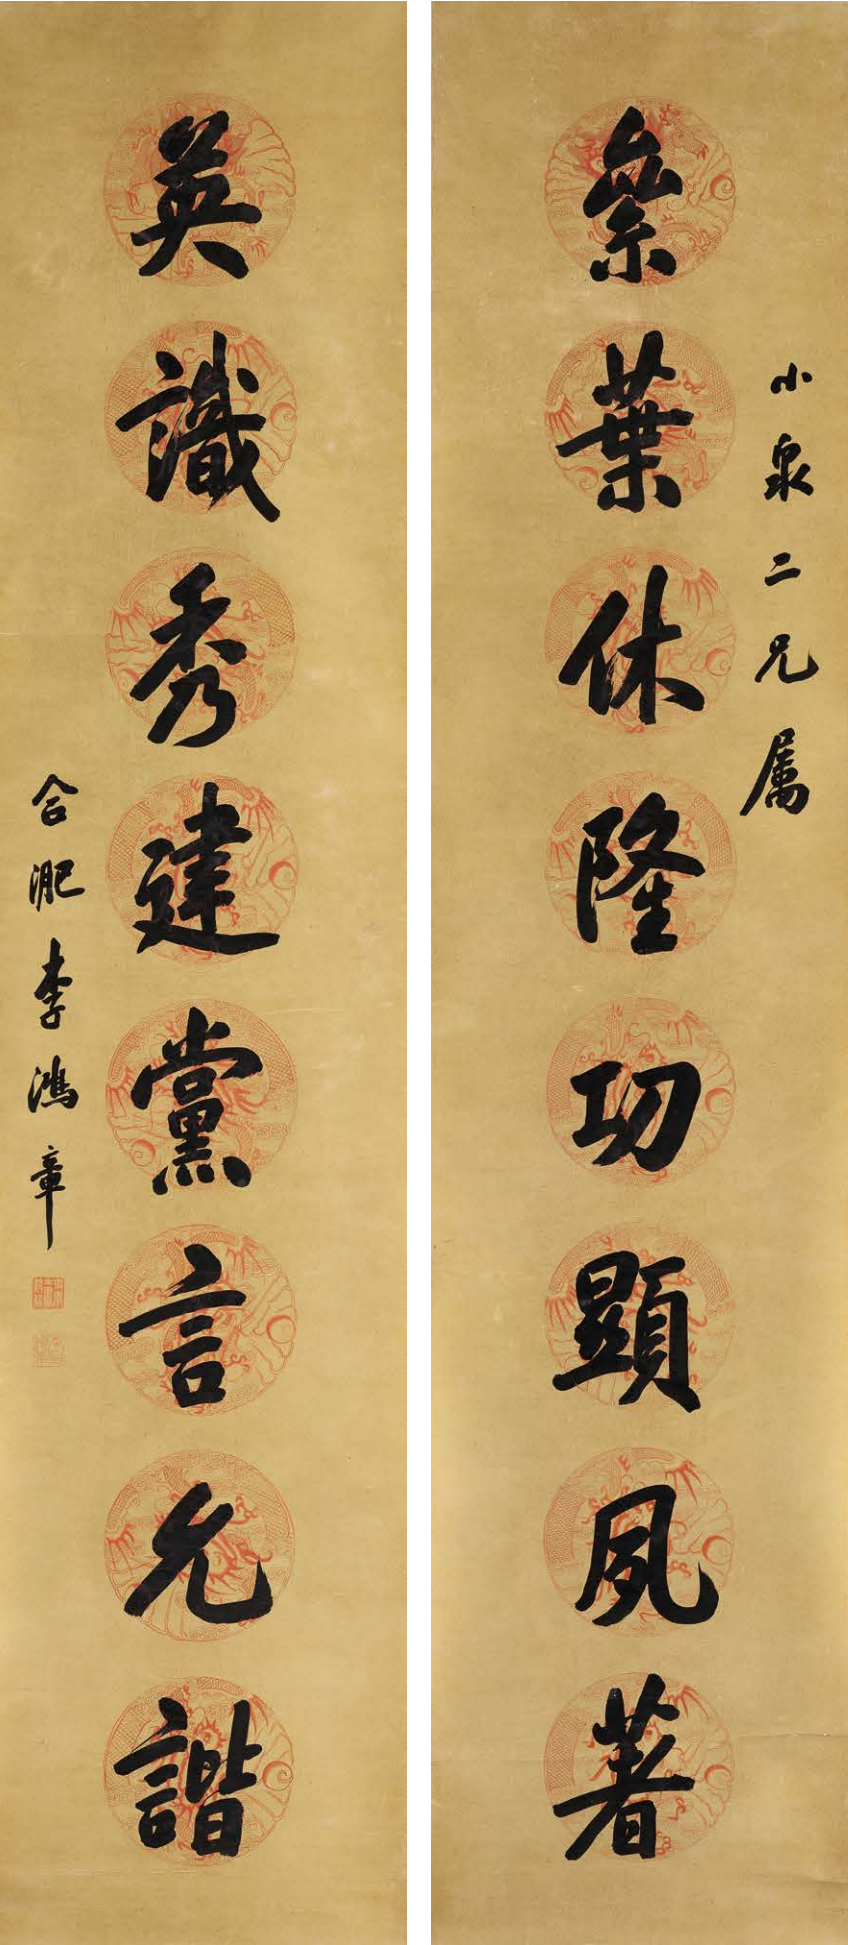 小泉二兄属
絫葉休隆功顯夙著
英識秀建黨言允諧
合淝李鴻章